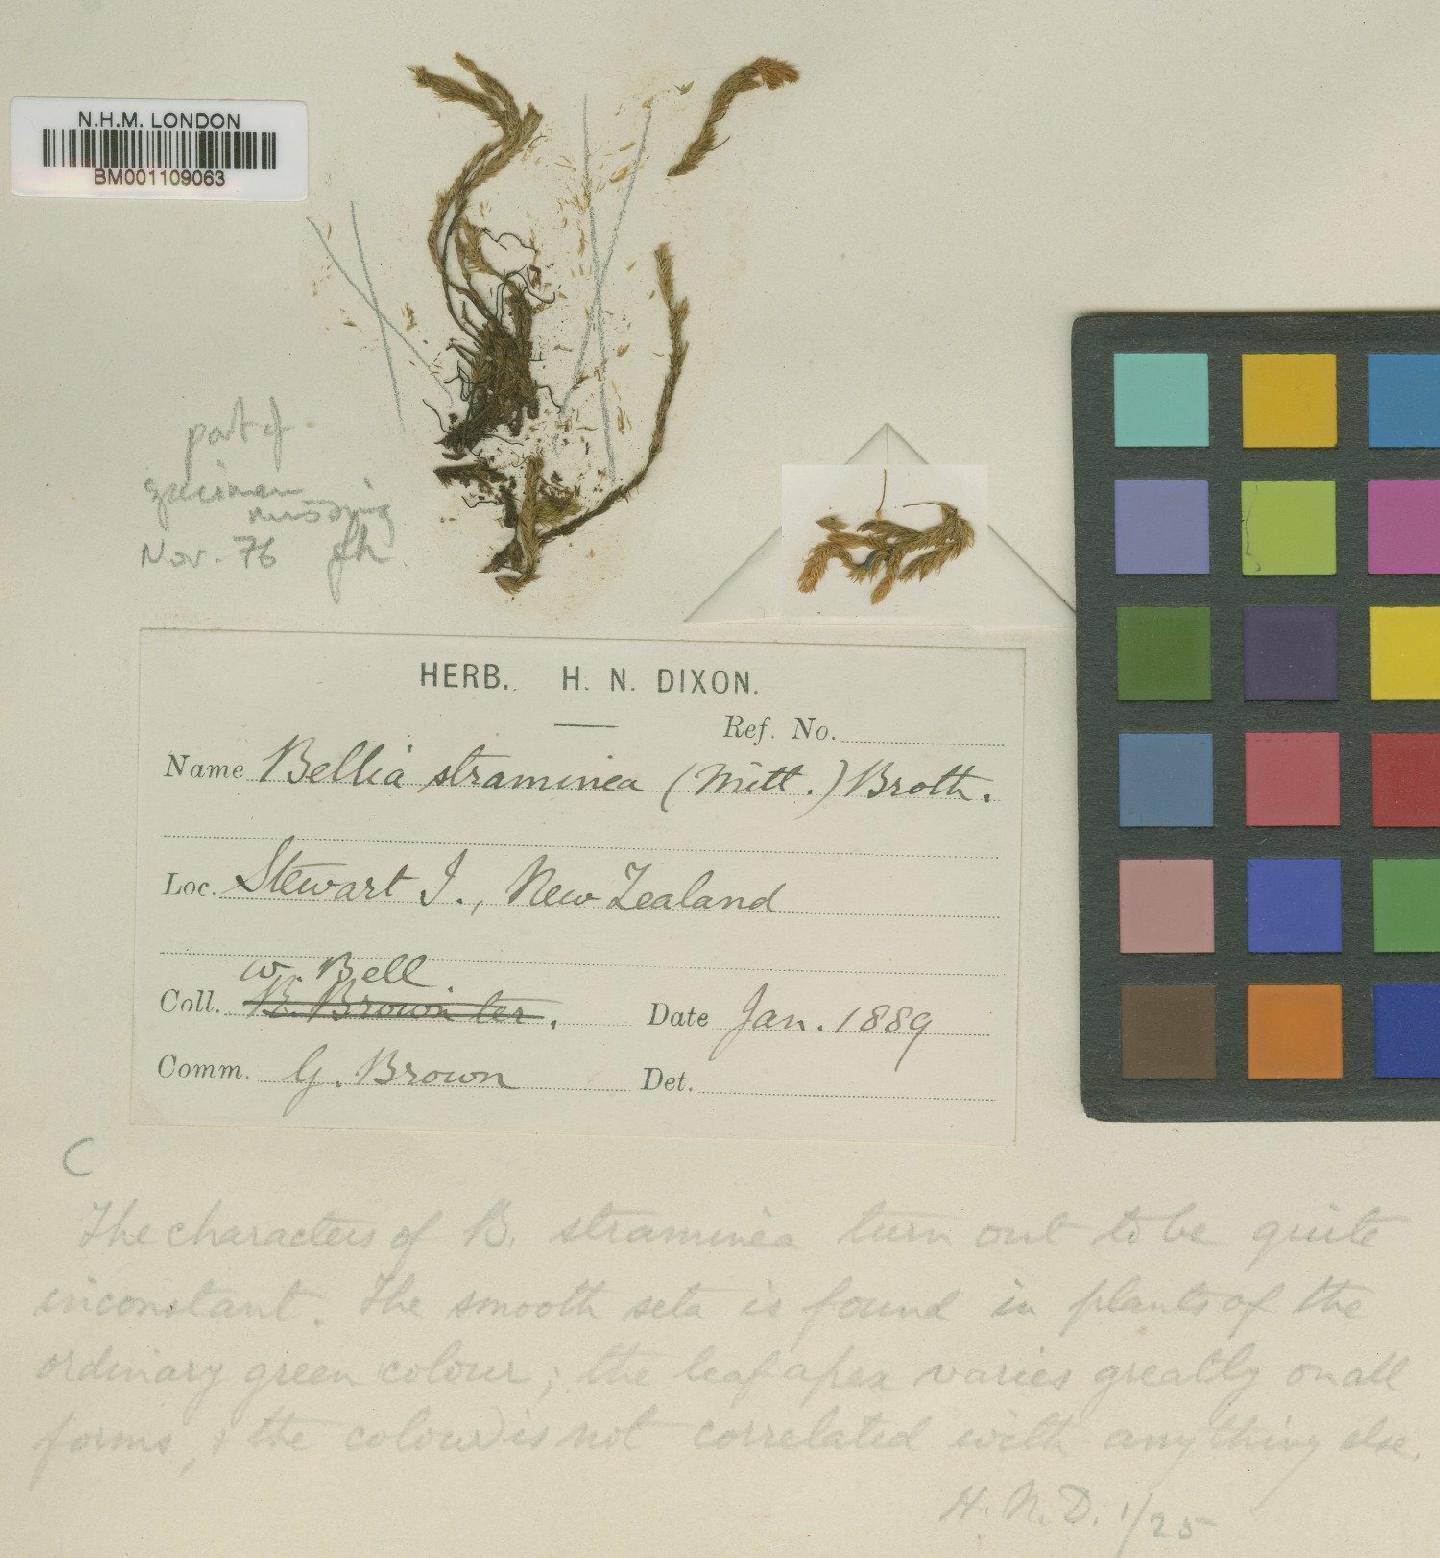 N.H.M. LONDON
BM001109063
part of
specimen
missing
Nov. 76
HERB. H. N. DIXON.
Ref. No.
Name Bellia straminea (Mitt.) Broth.
Loc. Stewart I., New Zealand
W. Bell.
Coll. B. Brown ter.
Date Jan. 1889
Comm. G. Brown
Det.
C
The characters of B. straminea turn out to be quite
inconstant. The smooth seta is found in plants of the
ordinary green colour; the leaf apex varies greatly on all
forms, & the colour is not correlated with anything else.
H. N. D. 1/25